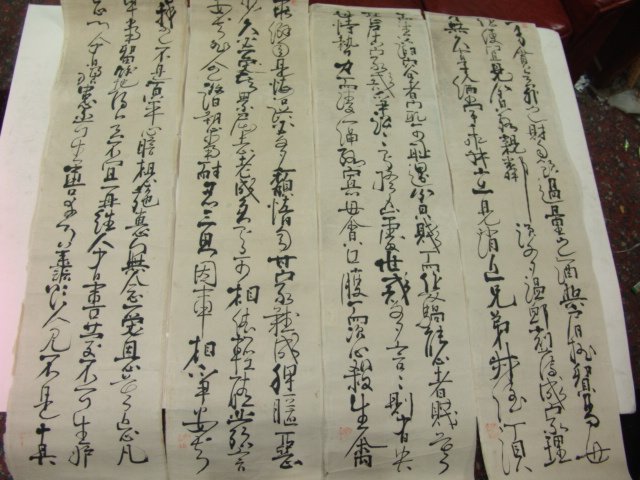 貪意外之財勿飲過量之酒與肩挑貿易毋
便宜見貧苦親鄰須多溫卹刻薄成家理
無久享倫常乖舛立見消亡兄弟叔姪須
諂容者最可恥遇貧賤而作驕態者賤莫
甚居家戒爭訟訟則終凶處世戒多言言則必失
恃勢力而凌逼孤寡毋貪口腹而恣殺生禽
乖僻自是悔誤必多頹惰自甘家難成狎暱惡
少久必受其累屈志老成急可相依輕聽發言
安知非人之譖愬當忍耐三思因事相爭安知
我之不是須平心暗想施惠無念受恩莫忘凡
事當留餘地得意不宜再往人有喜慶不可生妒
忌心人有禍患不可生喜幸心善欲人見不是真